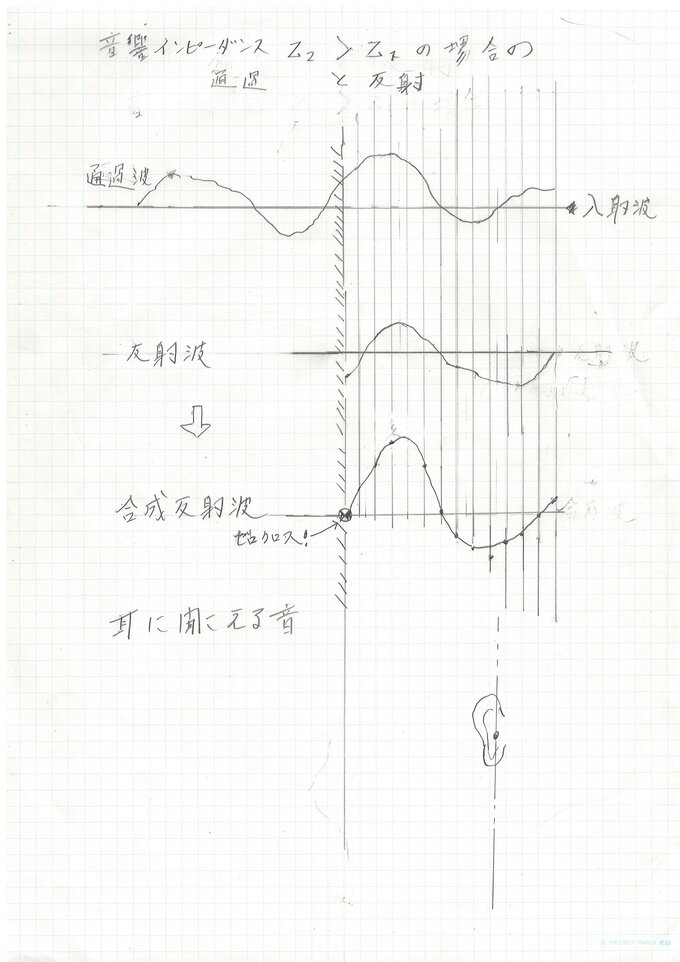 音響インピーダンス Z2 > Z1 の場合の
通過 と 反射
通過波
入射波
反射波
合成反射波
ゼロクロス!
耳に聞こえる音
PROJECT PAPER